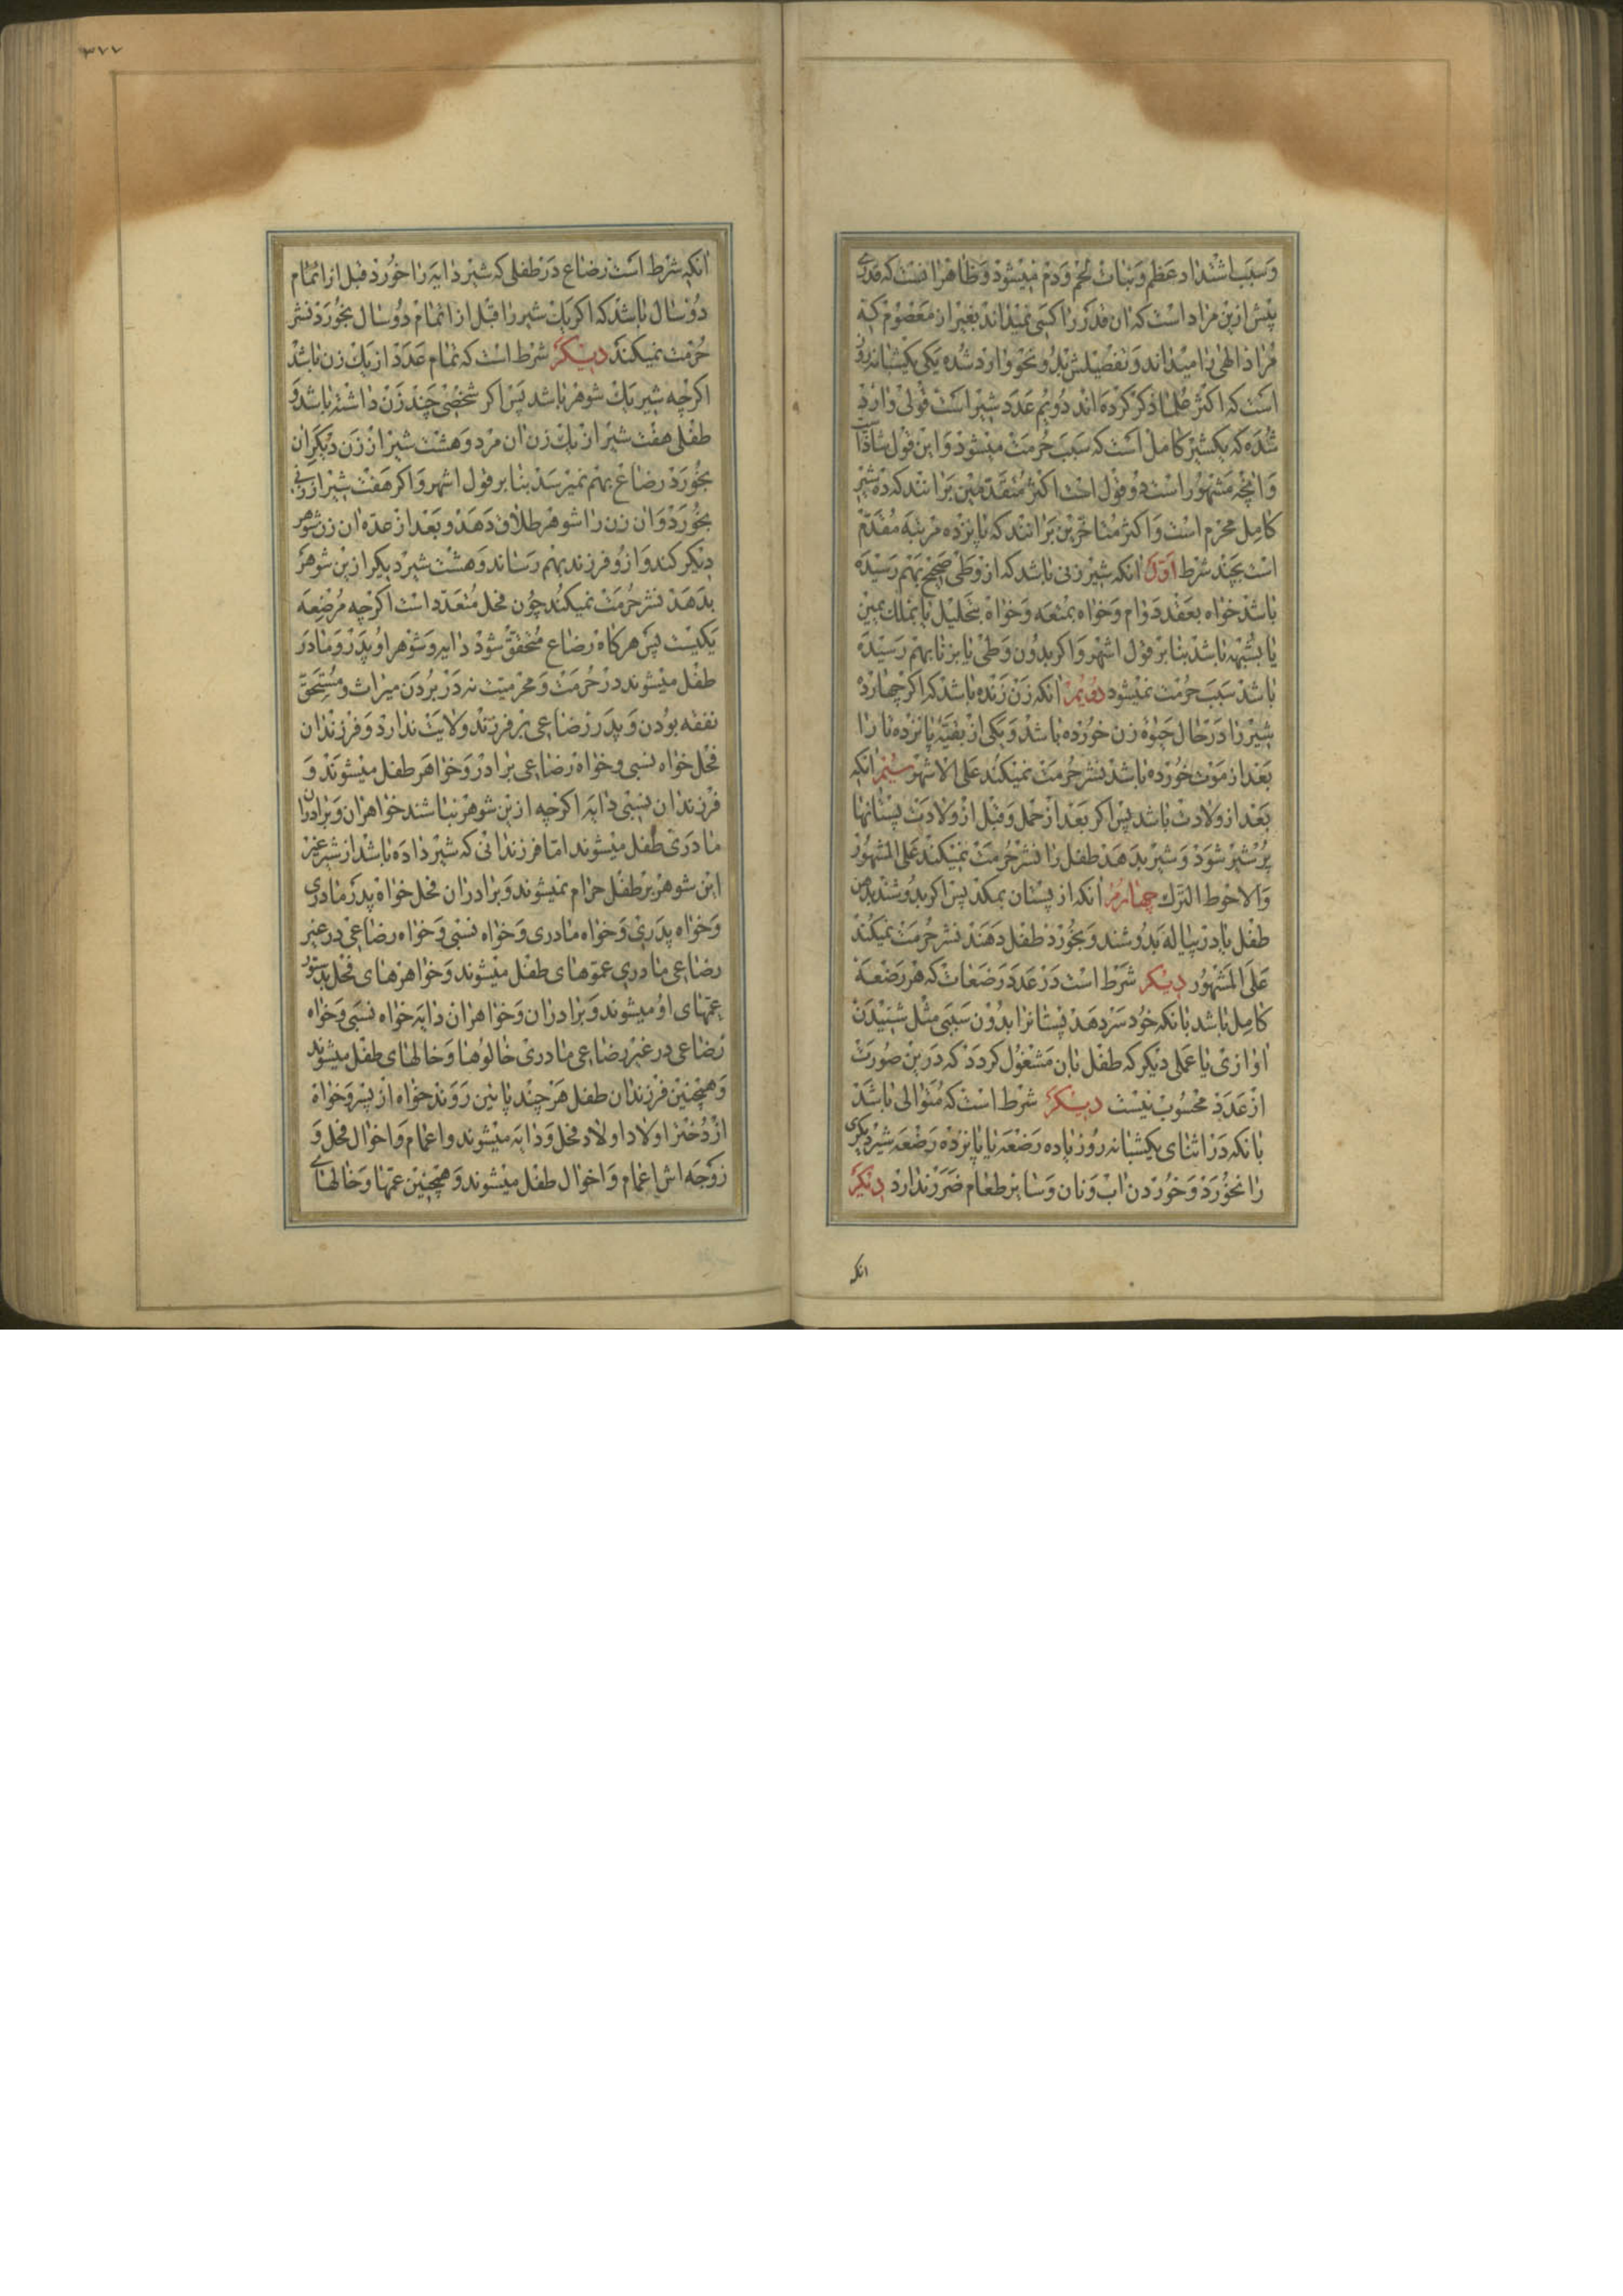 وسبب اشتداد عظم و نبات لحم و دم میشود و ظاهرا انست که قدری
پیش ازین مراد است که ان قدر را کسی نمیداند بغیر از معصوم که
مراد الهی را میداند و تفصیلش بدو نحو وارد شده یکی یکشبانه روز
است که اکثر علما ذکر کرده اند دویم عدد شیر است قولی وارد
شده که یکشیر کامل است که سبب حرمت میشود و این قول شاذ
وانچه مشهور است دو قول است اکثر متقدمین برانند که ده شیر
کامل محرم است و اکثر متاخرین برانند که پانزده مرتبه مقدم
است بچند شرط اول انکه شیر زنی باشد که از وطی صحیح بهم رسیده
باشد خواه بعقد دوام و خواه بمتعه و خواه بتحلیل یا بملک یمین
یا بشبهه باشد بنا بر قول اشهر و اکر بدون وطی یا بزنا بهم رسیده
باشد سبب حرمت نمیشود دویم انکه زن زنده باشد که اکر چهارده
شیر را در حال حیوة زن خورده باشد و یکی از بقیه پانزده تا را
بعد از موت خورده باشد نشر حرمت نمیکند علی الاشهر سیم انکه
بعد از ولادت باشد پس اکر بعد از حمل و قبل از ولادت پستانها
پر شیر شود و شیر بدهد طفل را نشر حرمت نمیکند علی المشهور
والاحوط الترک چهارم انکه از پستان بمکد پس اکر بدوشند بدهن
طفل یا در پیاله بدوشند و بخورد طفل دهند نشر حرمت نمیکند
علی المشهور دیکر شرط است در عدد رضعات که هر رضعه
کامل باشد بانکه خود سر دهد پستانرا بدون سببی مثل شنیدن
اوازی یا عملی دیکر که طفل بان مشغول کردد که درین صورت
از عدد محسوب نیست دیکر شرط است که متوالی باشد
بانکه در اثنای یکشبانه روز یا ده رضعه یا پانزده رضعه شیر دیکری
را نخورد و خوردن اب و نان و سایر طعام ضرر ندارد دیکر
انکه
٣٧٧
انکه شرط است رضاع در طفلی که شیر دایه را خورد قبل از اتمام
دو سال باشد که اکر یک شیر را قبل از اتمام دو سال بخورد نشر
حرمت نمیکند دیکر شرط است که تمام عدد از یک زن باشد
اکرچه شیر یک شوهر باشد پس اکر شخصی چند زن داشته باشد و
طفلی هفت شیر از یک زن ان مرد و هشت شیر از زن دیکر ان
بخورد رضاع بهم نمیرسد بنا بر قول اشهر و اکر هفت شیر از زنی
بخورد و ان زن را شوهر طلاق دهد و بعد از عده ان زن شوهر
دیکر کند و از و فرزند بهم رساند و هشت شیر دیکر ازین شوهر
بدهد نشر حرمت نمیکند چون فحل متعدد است اکرچه مرضعه
یکیست پس هرکاه رضاع متحقق شود دایه و شوهر او پدر و مادر
طفل میشوند در حرمت و محرمیت نه در بردن میراث و مستحق
نفقه بودن و پدر رضاعی بر فرزند ولایت ندارد و فرزندان
فحل خواه نسبی و خواه رضاعی برادر و خواهر طفل میشوند و
فرزندان نسبی دایه اکرچه ازین شوهر نباشند خواهران و برادران
مادری طفل میشوند اما فرزندانی که شیر داده باشد از شیر غیر
این شوهر بر طفل حرام نمیشوند و برادران فحل خواه پدر مادری
و خواه پدری و خواه مادری و خواه نسبی و خواه رضاعی در غیر
رضاعی مادری عموهای طفل میشوند و خواهرهای فحل بدستور
عمهای او میشوند و برادران و خواهران دایه خواه نسبی و خواه
رضاعی در غیر رضاعی مادری خالوها و خالهای طفل میشوند
و همچنین فرزندان طفل هر چند پائین روند خواه از پسر و خواه
از دختر اولاد اولاد فحل و دایه میشوند و اعمام و اخوال فحل و
زوجه اش اعمام و اخوال طفل میشوند و همچنین عمها و خالهای